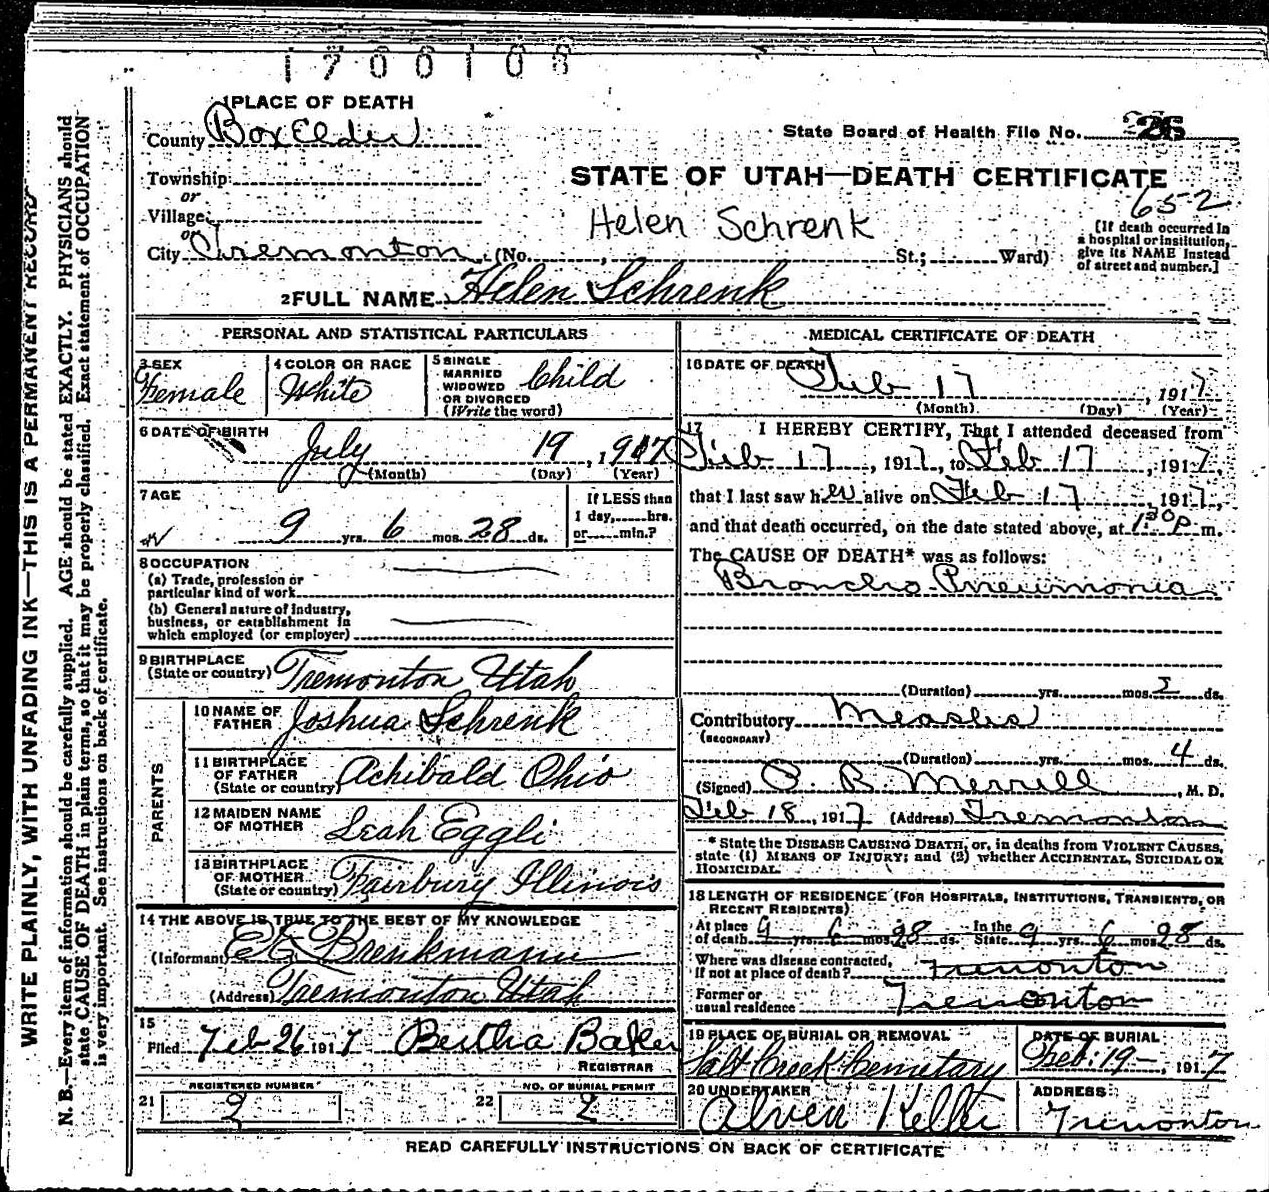 1700108
1 PLACE OF DEATH
County Box Elder
State Board of Health File No. 26
Township
or
Village
or
City Tremonton (No. , St.; Ward)
STATE OF UTAH—DEATH CERTIFICATE
652
Helen Schrenk
[If death occurred in
a hospital or institution,
give its NAME instead
of street and number.]
2 FULL NAME Helen Schrenk
PERSONAL AND STATISTICAL PARTICULARS
3 SEX
Female
4 COLOR OR RACE
White
5 SINGLE
MARRIED
WIDOWED
OR DIVORCED
(Write the word)
Child
6 DATE OF BIRTH
July 19, 1907
(Month) (Day) (Year)
7 AGE
9 yrs. 6 mos. 28 ds.
If LESS than
1 day, hrs.
or min.?
8 OCCUPATION
(a) Trade, profession or
particular kind of work
(b) General nature of industry,
business, or establishment in
which employed (or employer)
9 BIRTHPLACE
(State or country) Tremonton Utah
PARENTS
10 NAME OF
FATHER Joshua Schrenk
11 BIRTHPLACE
OF FATHER
(State or country) Achibald Ohio
12 MAIDEN NAME
OF MOTHER Leah Eggli
13 BIRTHPLACE
OF MOTHER
(State or country) Fairbury Illinois
14 THE ABOVE IS TRUE TO THE BEST OF MY KNOWLEDGE
(Informant) Brenkmann
(Address) Tremonton Utah
15
Filed Feb 26 1917 Bertha Baker
REGISTRAR
REGISTERED NUMBER
21 2
NO. OF BURIAL PERMIT
22 2
MEDICAL CERTIFICATE OF DEATH
16 DATE OF DEATH
Feb 17, 1917
(Month) (Day) (Year)
17 I HEREBY CERTIFY, That I attended deceased from
Feb 17, 1917, to Feb 17, 1917,
that I last saw her alive on Feb 17, 1917,
and that death occurred, on the date stated above, at 1 30 P. m.
The CAUSE OF DEATH* was as follows:
Broncho Pneumonia
(Duration) yrs. mos. 2 ds.
Contributory Measles
(SECONDARY)
(Duration) yrs. mos. 4 ds.
(Signed) Merrill, M. D.
Feb 18, 1917 (Address) Tremonton
* State the DISEASE CAUSING DEATH, or, in deaths from VIOLENT CAUSES,
state (1) MEANS OF INJURY; and (2) whether ACCIDENTAL, SUICIDAL OR
HOMICIDAL.
18 LENGTH OF RESIDENCE (FOR HOSPITALS, INSTITUTIONS, TRANSIENTS, OR
RECENT RESIDENTS)
At place
of death 9 yrs. 6 mos. 28 ds. In the
State 9 yrs. 6 mos. 28 ds.
Where was disease contracted,
if not at place of death? Tremonton
Former or
usual residence Tremonton
19 PLACE OF BURIAL OR REMOVAL
Salt Creek Cemetary
DATE OF BURIAL
Feb. 19—, 1917
20 UNDERTAKER
Alven Keller
ADDRESS
Tremonton
READ CAREFULLY INSTRUCTIONS ON BACK OF CERTIFICATE
WRITE PLAINLY, WITH UNFADING INK—THIS IS A PERMANENT RECORD
N. B.—Every item of information should be carefully supplied. AGE should be stated EXACTLY. PHYSICIANS should
state CAUSE OF DEATH in plain terms, so that it may be properly classified. Exact statement of OCCUPATION
is very important. See instructions on back of certificate.